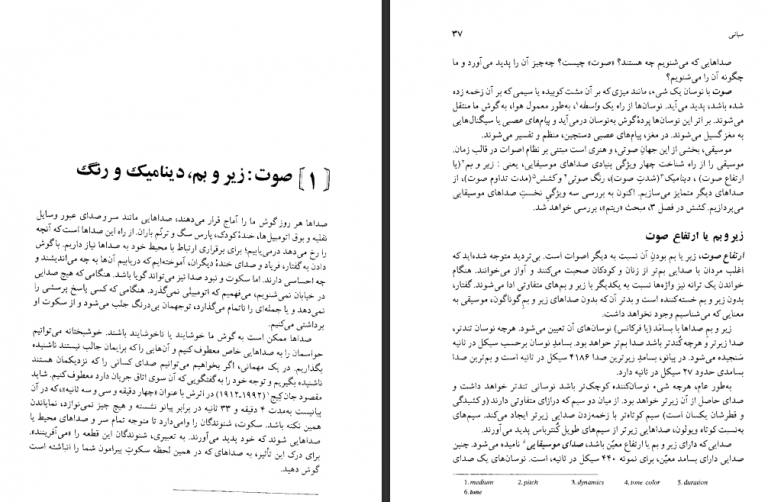 [۱] صوت: زیر و بم، دینامیک و رنگ
صداها هر روز گوش ما را آماج قرار می‌دهند، صداهایی مانند سر و صدای عبور وسایل
نقلیه و بوق اتومبیل‌ها، خندهٔ کودک، پارس سگ و ترنّم باران. از راه این صداها است که آنچه
را رخ می‌دهد درمی‌یابیم؛ برای برقراری ارتباط با محیط خود به صداها نیاز داریم. با گوش
دادن به گفتار، فریاد و صدای خندهٔ دیگران، آموخته‌ایم که دریابیم آن‌ها به چه می‌اندیشند و
چه احساسی دارند. اما سکوت و نبود صدا نیز می‌تواند گویا باشد. هنگامی که هیچ صدایی
در خیابان نمی‌شنویم، می‌فهمیم که اتومبیلی نمی‌گذرد. هنگامی که کسی پاسخ پرسشی را
نمی‌دهد و یا جمله‌ای را ناتمام می‌گذارد، توجهمان بی‌درنگ جلب می‌شود و از سکوت او
برداشتی می‌کنیم.
صداها ممکن است به گوش ما خوشایند یا ناخوشایند باشند. خوشبختانه می‌توانیم
حواسمان را به صداهایی خاص معطوف کنیم و آن‌هایی را که برایمان جالب نیستند ناشنیده
بگذاریم. در یک مهمانی، اگر بخواهیم می‌توانیم صدای کسانی را که نزدیکمان هستند
ناشنیده بگیریم و توجه خود را به گفتگویی که آن سوی اتاق جریان دارد معطوف کنیم. شاید
مقصود جان کیج (۱۹۹۲-۱۹۱۲) در اثرش با عنوان «چهار دقیقه و سی و سه ثانیه»، که در آن
پیانیست به‌مدت ۴ دقیقه و ۳۳ ثانیه در برابر پیانو نشسته و هیچ چیز نمی‌نوازد، نمایاندن
همین نکته باشد. سکوت، شنوندگان را وامی‌دارد تا متوجه تمام سر و صداهای محیط یا
صداهایی شوند که خود پدید می‌آورند. به تعبیری، شنوندگان این قطعه را «می‌آفرینند».
برای درک این تأثیر، به صداهای که در همین لحظه سکوتِ پیرامون شما را انباشته است
گوش دهید.
مبانی
۳۷
صداهایی که می‌شنویم چه هستند؟ «صوت» چیست؟ چه‌چیز آن را پدید می‌آورد و ما
چگونه آن را می‌شنویم؟
صوت با نوسان یک شیء، مانند میزی که بر آن مشت کوبیده یا سیمی که بر آن زخمه زده
شده باشد، پدید می‌آید. نوسان‌ها از راه یک واسطه۱، به‌طور معمول هوا، به گوش ما منتقل
می‌شوند. بر اثر این نوسان‌ها پردهٔ گوش به‌نوسان درمی‌آید و پیام‌های عصبی یا سیگنال‌هایی
به مغز گسیل می‌شوند. در مغز، پیام‌های عصبی دستچین، منظم و تفسیر می‌شوند.
موسیقی، بخشی از این جهانِ صوتی، و هنری است مبتنی بر نظام اصوات در قالب زمان.
موسیقی را از راه شناخت چهار ویژگی بنیادی صداهای موسیقایی، یعنی: زیر و بم۲ (یا
ارتفاع صوت)، دینامیک۳ (شدتِ صوت)، رنگ صوتی۴ و کشش۵ (مدت تداوم صوت)، از
صداهای دیگر متمایز می‌سازیم. اکنون به بررسی سه ویژگیِ نخستِ صداهای موسیقایی
می‌پردازیم. کشش در فصل ۳، مبحث «ریتم»، بررسی خواهد شد.
زیر و بم یا ارتفاع صوت
ارتفاع صوت، زیر یا بم بودنِ آن نسبت به دیگر اصوات است. بی‌تردید متوجه شده‌اید که
اغلب مردان با صدایی بم‌تر از زنان و کودکان صحبت می‌کنند و آواز می‌خوانند. هنگام
خواندن یک ترانه نیز واژه‌ها نسبت به یکدیگر با زیر و بم‌های متفاوتی ادا می‌شوند. گفتار،
بدون زیر و بم خسته‌کننده است و بدتر آن که بدون صداهای زیر و بمِ گوناگون، موسیقی به
معنایی که می‌شناسیم وجود نخواهد داشت.
زیر و بم صداها با بسامد (یا فرکانس) نوسان‌های آن تعیین می‌شود. هرچه نوسان تندتر،
صدا زیرتر و هرچه کُندتر باشد صدا بم‌تر خواهد بود. بسامدِ نوسان برحسب سیکل در ثانیه
سَنجیده می‌شود. در پیانو، بسامدِ زیرترین صدا ۴۱۸۶ سیکل در ثانیه است و بم‌ترین صدا
بسامدی حدود ۲۷ سیکل در ثانیه دارد.
به‌طور عام، هرچه شیء نوسان‌کننده کوچک‌تر باشد نوسانی تندتر خواهد داشت و
صدای حاصل از آن زیرتر خواهد بود. از میان دو سیم که درازای متفاوتی دارند (و کشیدگی
و قطرشان یکسان است) سیم کوتاه‌تر با زخمه‌زدن صدایی زیرتر ایجاد می‌کند. سیم‌های
به‌نسبت کوتاه ویولون، صداهایی زیرتر از سیم‌های طویل کُنترباس پدید می‌آورند.
صدایی که دارای زیر و بم یا ارتفاع معیّن باشد، صدای موسیقایی۶ نامیده می‌شود. چنین
صدایی دارای بسامد معیّن، برای نمونه ۴۴۰ سیکل در ثانیه، است. نوسان‌های یک صدای
1. medium 2. pitch 3. dynamics 4. tone color 5. duration
6. tone